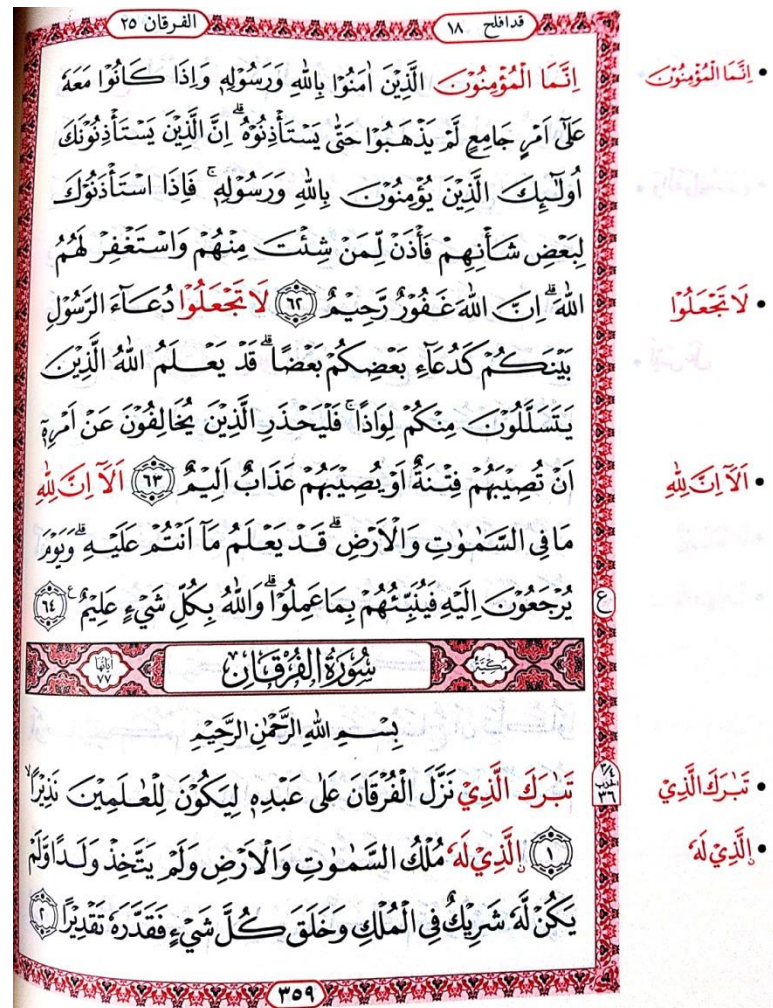 قدافلح ١٨
الفرقان ٢٥
اِنَّمَا الْمُؤْمِنُوْنَ الَّذِيْنَ اٰمَنُوْا بِاللّٰهِ وَرَسُوْلِهٖ وَاِذَا كَانُوْا مَعَهٗ
عَلٰٓى اَمْرٍ جَامِعٍ لَّمْ يَذْهَبُوْا حَتّٰى يَسْتَأْذِنُوْهُ ۗ اِنَّ الَّذِيْنَ يَسْتَأْذِنُوْنَكَ
اُولٰۤىِٕكَ الَّذِيْنَ يُؤْمِنُوْنَ بِاللّٰهِ وَرَسُوْلِهٖ ۚ فَاِذَا اسْتَأْذَنُوْكَ
لِبَعْضِ شَأْنِهِمْ فَأْذَنْ لِّمَنْ شِئْتَ مِنْهُمْ وَاسْتَغْفِرْ لَهُمُ
اللّٰهَ ۗ اِنَّ اللّٰهَ غَفُوْرٌ رَّحِيْمٌ ٦٢ لَا تَجْعَلُوْا دُعَاۤءَ الرَّسُوْلِ
بَيْنَكُمْ كَدُعَاۤءِ بَعْضِكُمْ بَعْضًا ۗ قَدْ يَعْلَمُ اللّٰهُ الَّذِيْنَ
يَتَسَلَّلُوْنَ مِنْكُمْ لِوَاذًا ۚ فَلْيَحْذَرِ الَّذِيْنَ يُخَالِفُوْنَ عَنْ اَمْرِهٖٓ
اَنْ تُصِيْبَهُمْ فِتْنَةٌ اَوْ يُصِيْبَهُمْ عَذَابٌ اَلِيْمٌ ٦٣ اَلَآ اِنَّ لِلّٰهِ
مَا فِى السَّمٰوٰتِ وَالْاَرْضِ ۗ قَدْ يَعْلَمُ مَآ اَنْتُمْ عَلَيْهِ ۗ وَيَوْمَ
يُرْجَعُوْنَ اِلَيْهِ فَيُنَبِّئُهُمْ بِمَا عَمِلُوْا ۗ وَاللّٰهُ بِكُلِّ شَيْءٍ عَلِيْمٌ ٦٤
ع
مَكِّيَّةٌ سُوْرَةُ الْفُرْقَانِ اٰيَاتُهَا ٧٧
بِسْمِ اللّٰهِ الرَّحْمٰنِ الرَّحِيْمِ
تَبٰرَكَ الَّذِيْ نَزَّلَ الْفُرْقَانَ عَلٰى عَبْدِهٖ لِيَكُوْنَ لِلْعٰلَمِيْنَ نَذِيْرًا ۙ
٣/٤ الحزب ٣٦
١ اۨلَّذِيْ لَهٗ مُلْكُ السَّمٰوٰتِ وَالْاَرْضِ وَلَمْ يَتَّخِذْ وَلَدًا وَّلَمْ
يَكُنْ لَّهٗ شَرِيْكٌ فِى الْمُلْكِ وَخَلَقَ كُلَّ شَيْءٍ فَقَدَّرَهٗ تَقْدِيْرًا ٢
٣٥٩
• اِنَّمَا الْمُؤْمِنُوْنَ
• لَا تَجْعَلُوْا
• اَلَآ اِنَّ لِلّٰهِ
• تَبٰرَكَ الَّذِيْ
• اۨلَّذِيْ لَهٗ